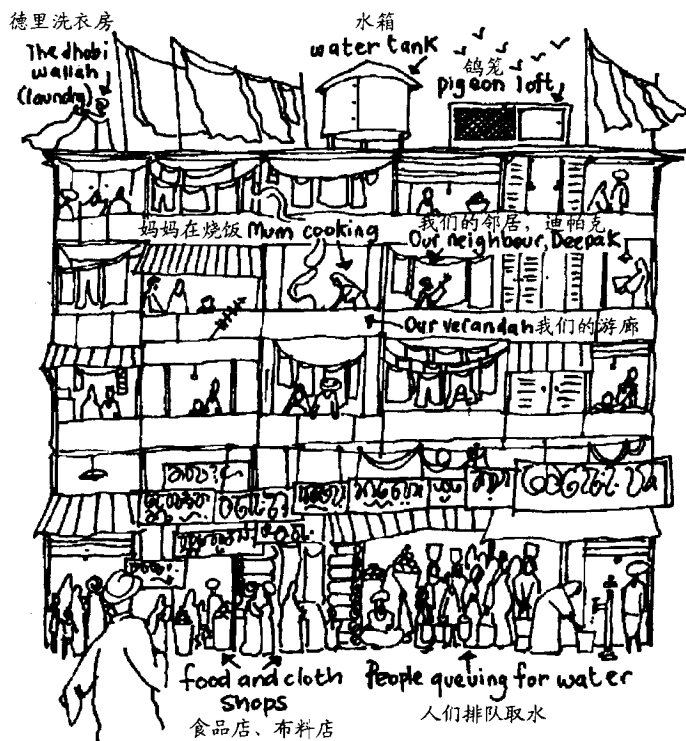 德里洗衣房
The dhobi
wallah
(laundry)
水箱
water tank
鸽笼
pigeon loft
妈妈在烧饭 Mum cooking
我们的邻居，迪帕克
Our neighbour, Deepak
Our verandah 我们的游廊
food and cloth
shops
食品店、布料店
People queuing for water
人们排队取水